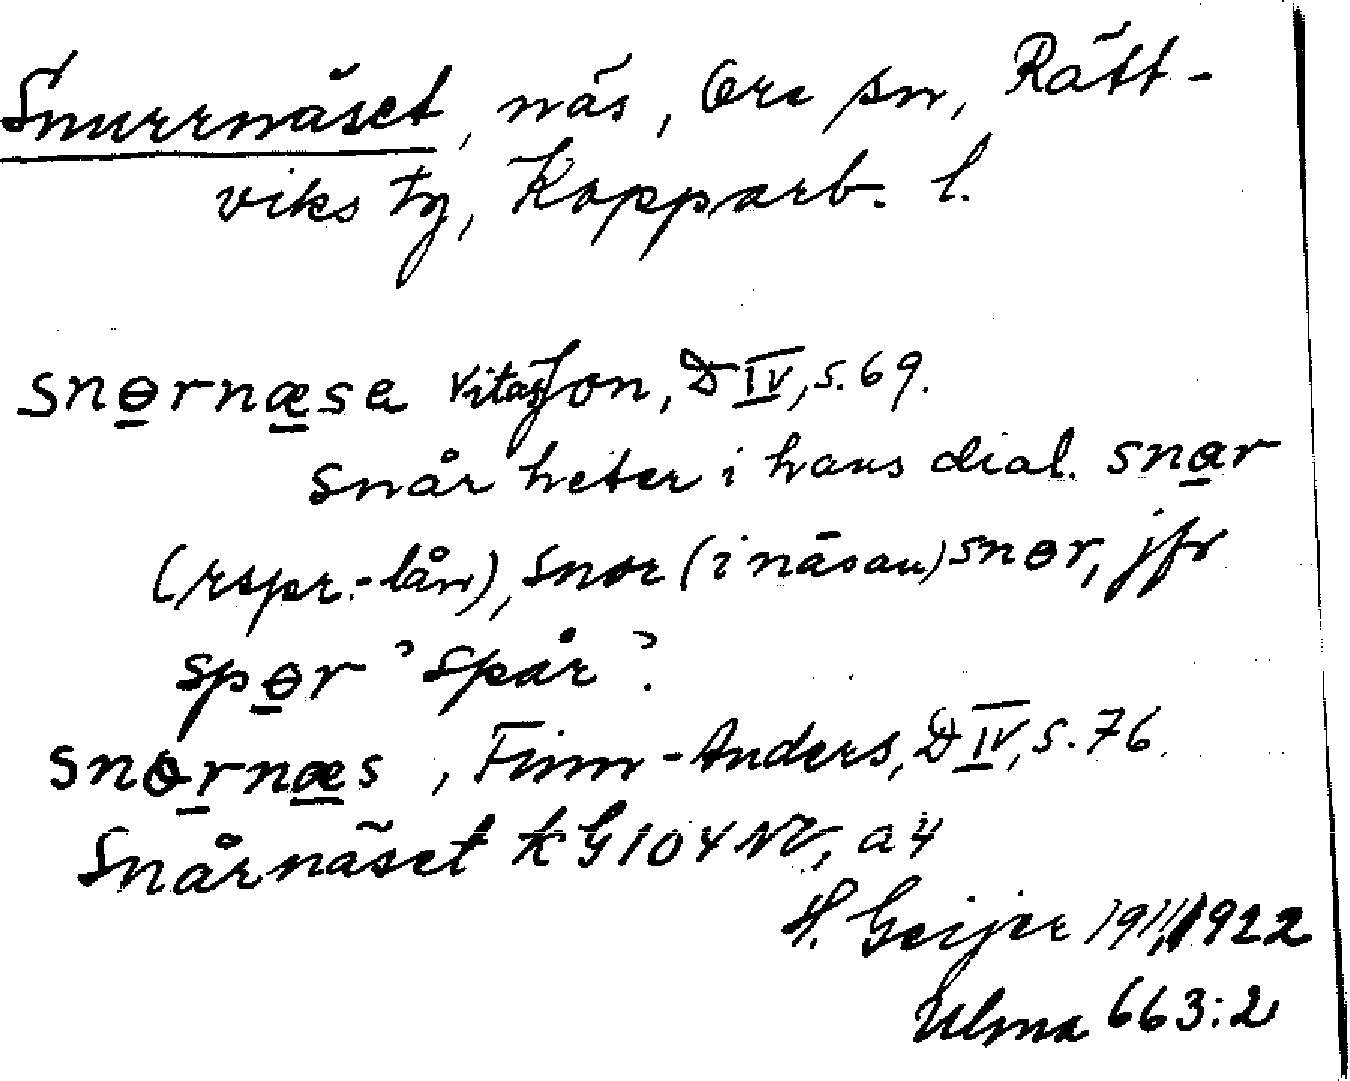 Snurrnäset, näs, Ore sn, Rätt-
viks tg, Kopparb. l.
snɵrnæsa Vitasjon, D IV, s. 69.
snår heter i hans dial. snar
(rspr.-lån), snor (i näsan) snɵr, jfr
spɵr 'spår'.
snɵrnæs, Finn-Anders, D IV, s. 76.
Snårnäset k G 104 NV, a 4
H. Geijer 1911, 1922
Ulma 663:2